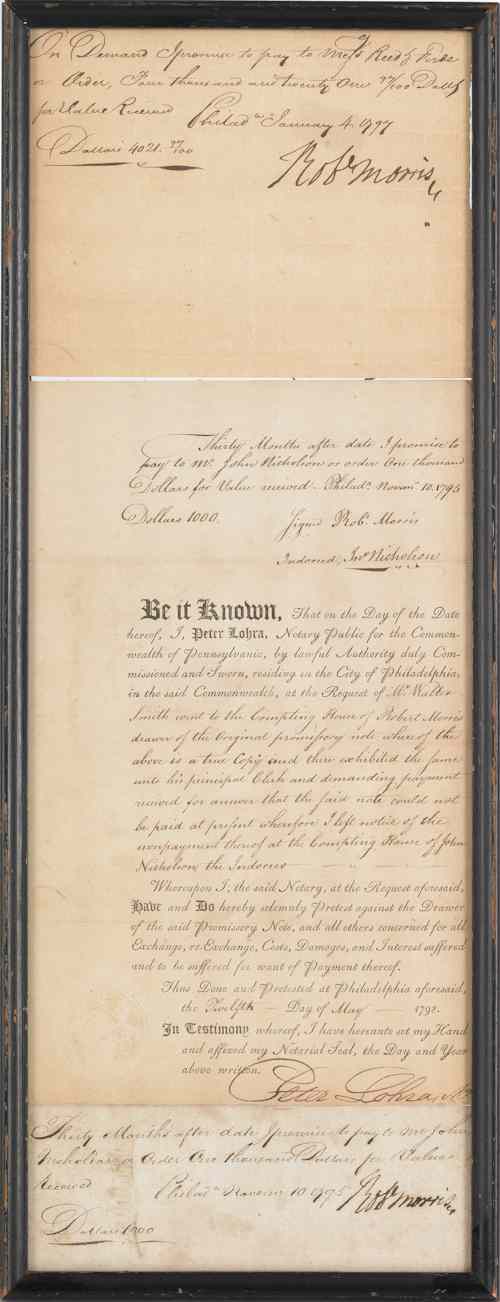 On Demand I promise to pay to Mess.rs Reed & Forde
or Order, Four thousand and twenty One 37/100 Dolls
for Value Received Philad.a January 4. 1797
Dollars 4021. 37/100
Rob.t Morris
Thirty Months after date I promise to
pay to Mr. John Nicholson or order One thousand
Dollars for Value received — Philad.a Novem.r 10. 1795
Dollars 1000. Signed Rob.t Morris
Indorsed, Jno. Nicholson
Be it Known, That on the Day of the Date
hereof, I, Peter Lohra, Notary Public for the Common-
wealth of Pennsylvania, by lawful Authority duly Com-
missioned and Sworn, residing in the City of Philadelphia,
in the said Commonwealth, at the Request of Mr. Walter
Smith went to the Compting House of Robert Morris
drawer of the Original promissory note where of the
above is a true Copy and there exhibited the same
unto his principal Clerk and demanding payment
received for answer that the said note could not
be paid at present wherefore I left notice of the
nonpayment thereof at the Compting House of John
Nicholson the Indorser
Whereupon I, the said Notary, at the Request aforesaid,
Have and Do hereby solemnly Protest against the Drawer
of the said Promissory Note, and all others concerned for all
Exchange, re-Exchange, Costs, Damages, and Interest suffered
and to be suffered for want of Payment thereof.
Thus Done and Protested at Philadelphia aforesaid,
the Twelfth — Day of May — 1798.
In Testimony whereof, I have hereunto set my Hand
and affixed my Notarial Seal, the Day and Year
above written.
Peter Lohra
Thirty Months after date I promise to pay to Mr John
Nicholson or Order One thousand Dollars for Value
Received Philad.a Novem.r 10 1795 Rob.t Morris
Dollars 1000